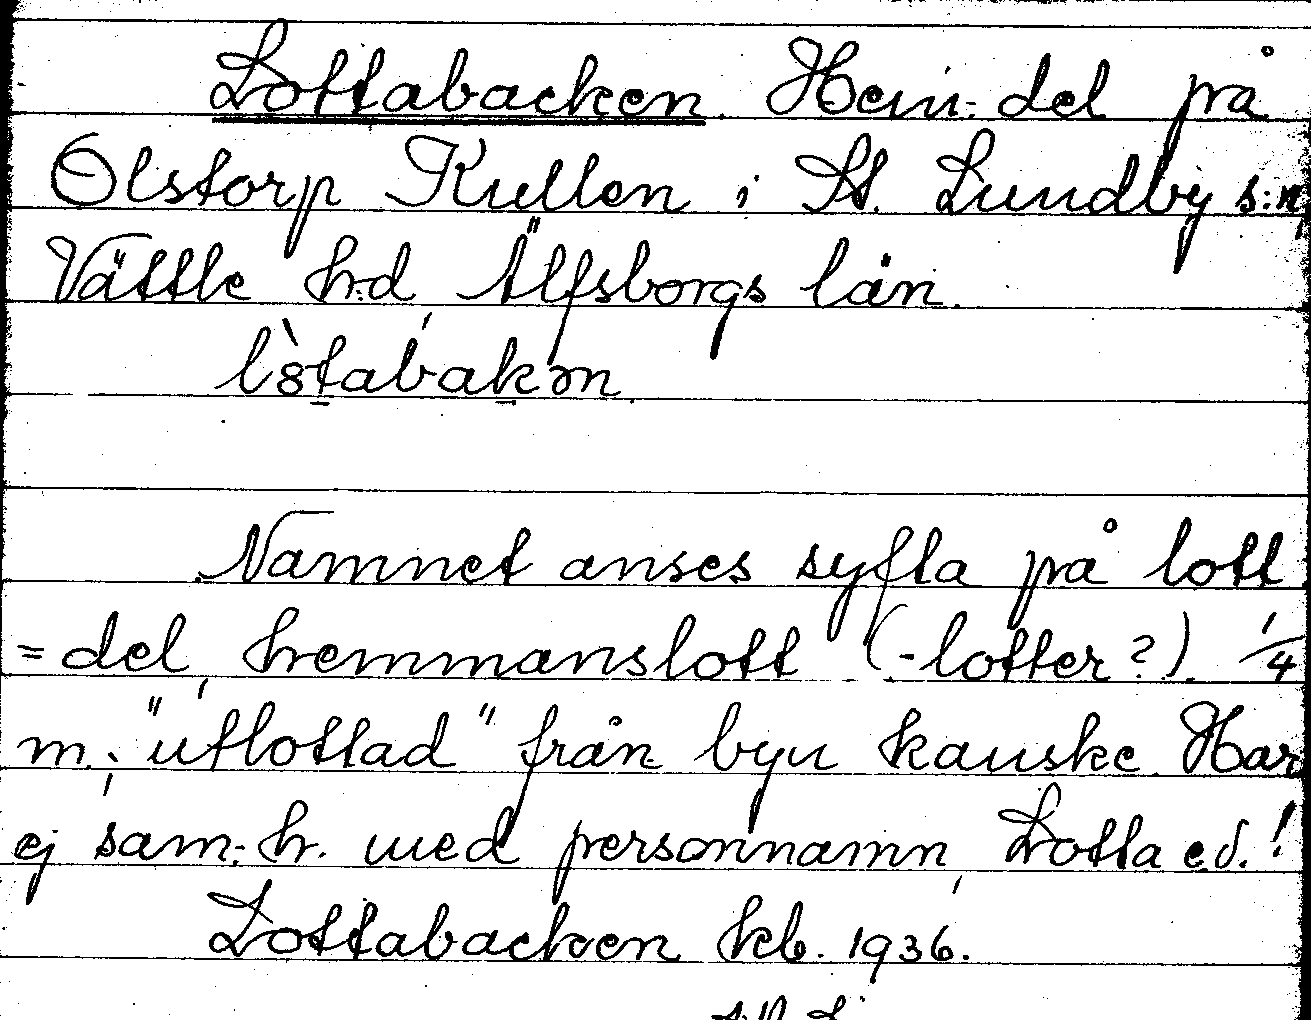 Lottabacken. Hem.del på
Olstorp Kullen i St. Lundby s:n,
Vättle h:d, Älfsborgs län.
l`8tabakən.
Namnet anses syfta på lott
= del, hemmanslott (-lotter?). 1/4
m.; "utlottad" från byn kanske. Har
ej sam.h. med personnamn, Lotta e.d.!
Lottabacken kb. 1936.